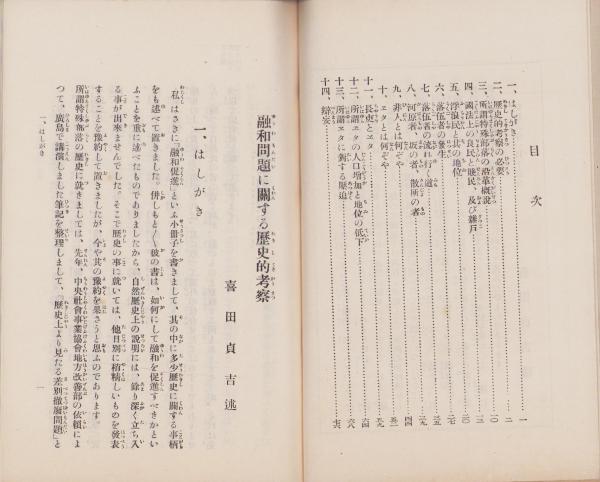 目次
一、はしがき……一
二、歴史的考察の必要……二
三、所謂特殊部落の沿革概説……五
四、國法上の良民と賤民、及び雜戸……一〇
五、浮浪民と其の地位……一七
六、落伍者の發生……二〇
七、落伍者の流れ行く道……二九
八、河原者、坂の者、散所の者
九、非人とは何ぞや
十、ヱタとは何ぞや
十一、長吏とヱタ
十二、所謂ヱタの人口增加と地位の低下
十三、所謂ヱタに對する壓迫
十四、結
融和問題に關する歴史的考察
喜田貞吉述
一、はしがき
私はさきに『融和促進』といふ小册子を書きまして、其の中に多少歴史に關する事柄
をも述べて置きました。併しもと〳〵彼の書は、如何にして融和を促進すべきかとい
ふことを重に述べたものでありましたから、自然歴史上の說明には、餘り深く立ち入
る事が出來ませんでした。そこで歴史の事に就いては、他日別に稍精しいものを發表
することを豫約して置きましたが、今や其の豫約を果さうと思ふのであります。
所謂特殊部落の歴史に就きましては、先年、中央社會事業協會地方改善部の依賴によ
つて、廣島で講演しました筆記を整理しまして、『歴史上より見たる差別撤廢問題』と
一、はしがき
一